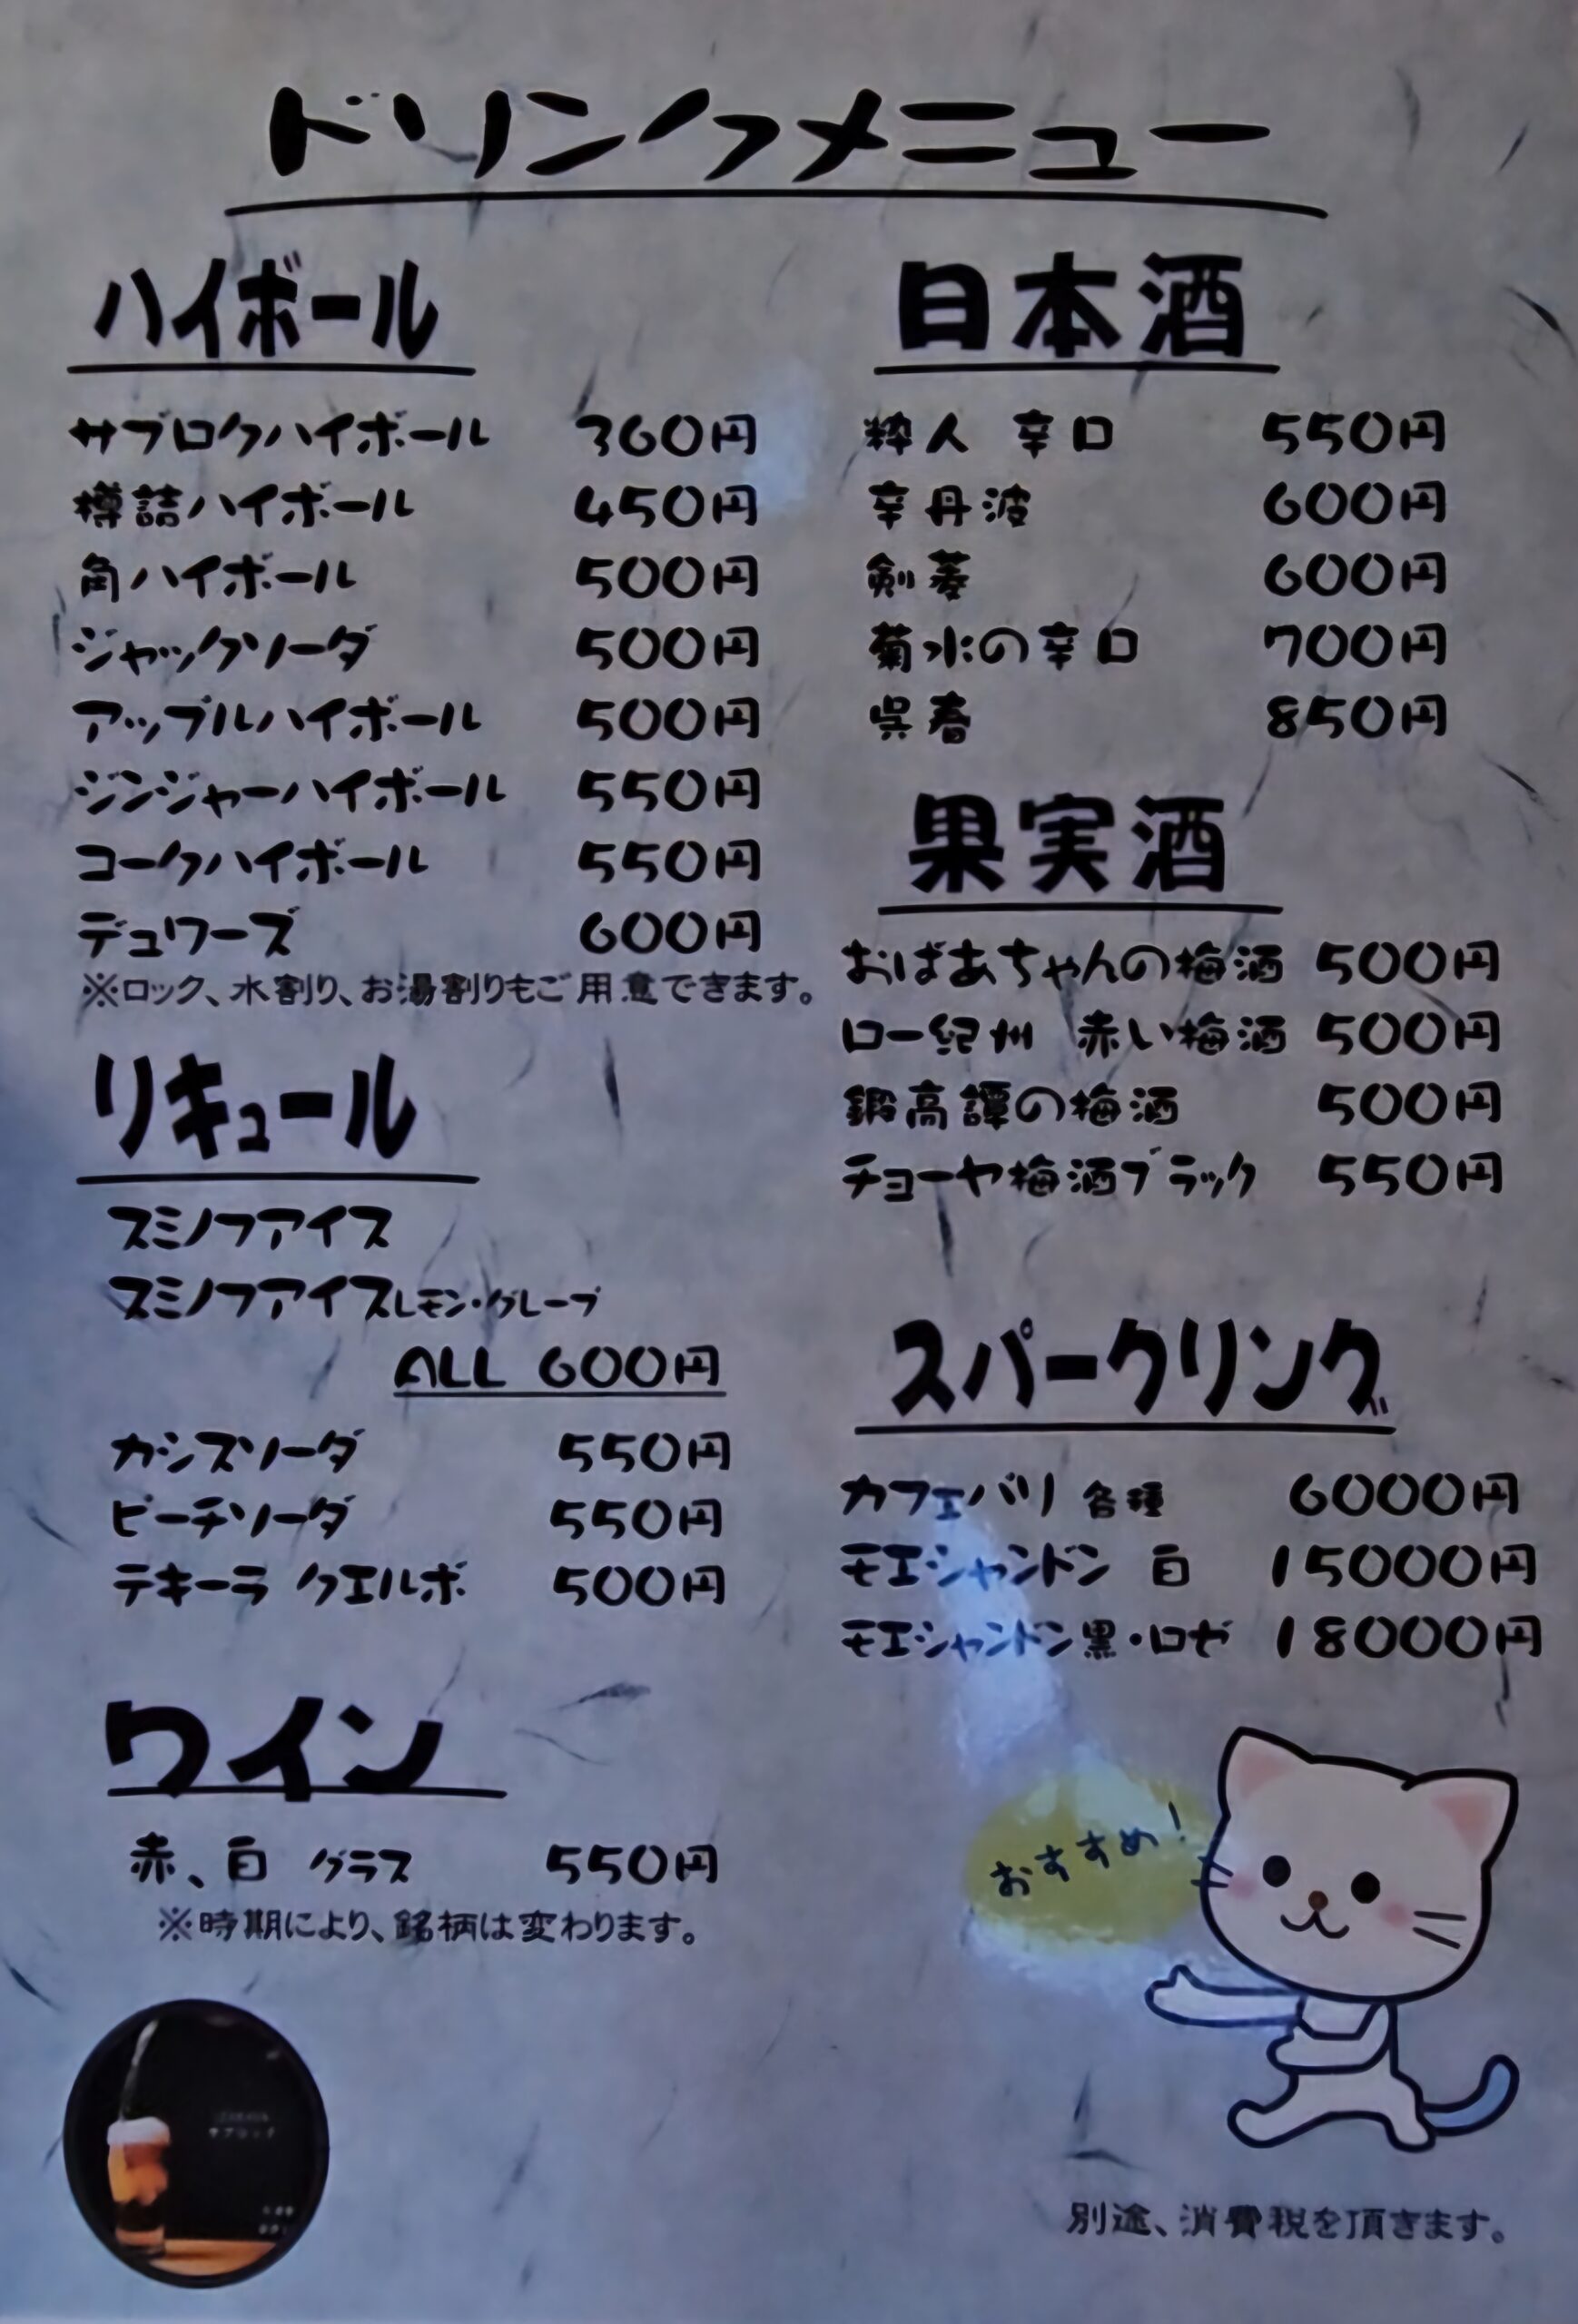 ドリンクメニュー
ハイボール
サブロクハイボール 360円
樽詰ハイボール 450円
角ハイボール 500円
ジャックソーダ 500円
アップルハイボール 500円
ジンジャーハイボール 550円
コークハイボール 550円
デュワーズ 600円
※ロック、水割り、お湯割りもご用意できます。
リキュール
スミノフアイス
スミノフアイスレモン・グレープ
ALL 600円
カシスソーダ 550円
ピーチソーダ 550円
テキーラ クエルボ 500円
ワイン
赤、白 グラス 550円
※時期により、銘柄は変わります。
日本酒
粋人 辛口 550円
辛丹波 600円
剣菱 600円
菊水の辛口 700円
呉春 850円
果実酒
おばあちゃんの梅酒 500円
ロー紀州 赤い梅酒 500円
鍛高譚の梅酒 500円
チョーヤ梅酒ブラック 550円
スパークリング
カフェバリ 各種 6000円
モエシャンドン 白 15000円
モエシャンドン黒・ロゼ 18000円
おすすめ!
別途、消費税を頂きます。